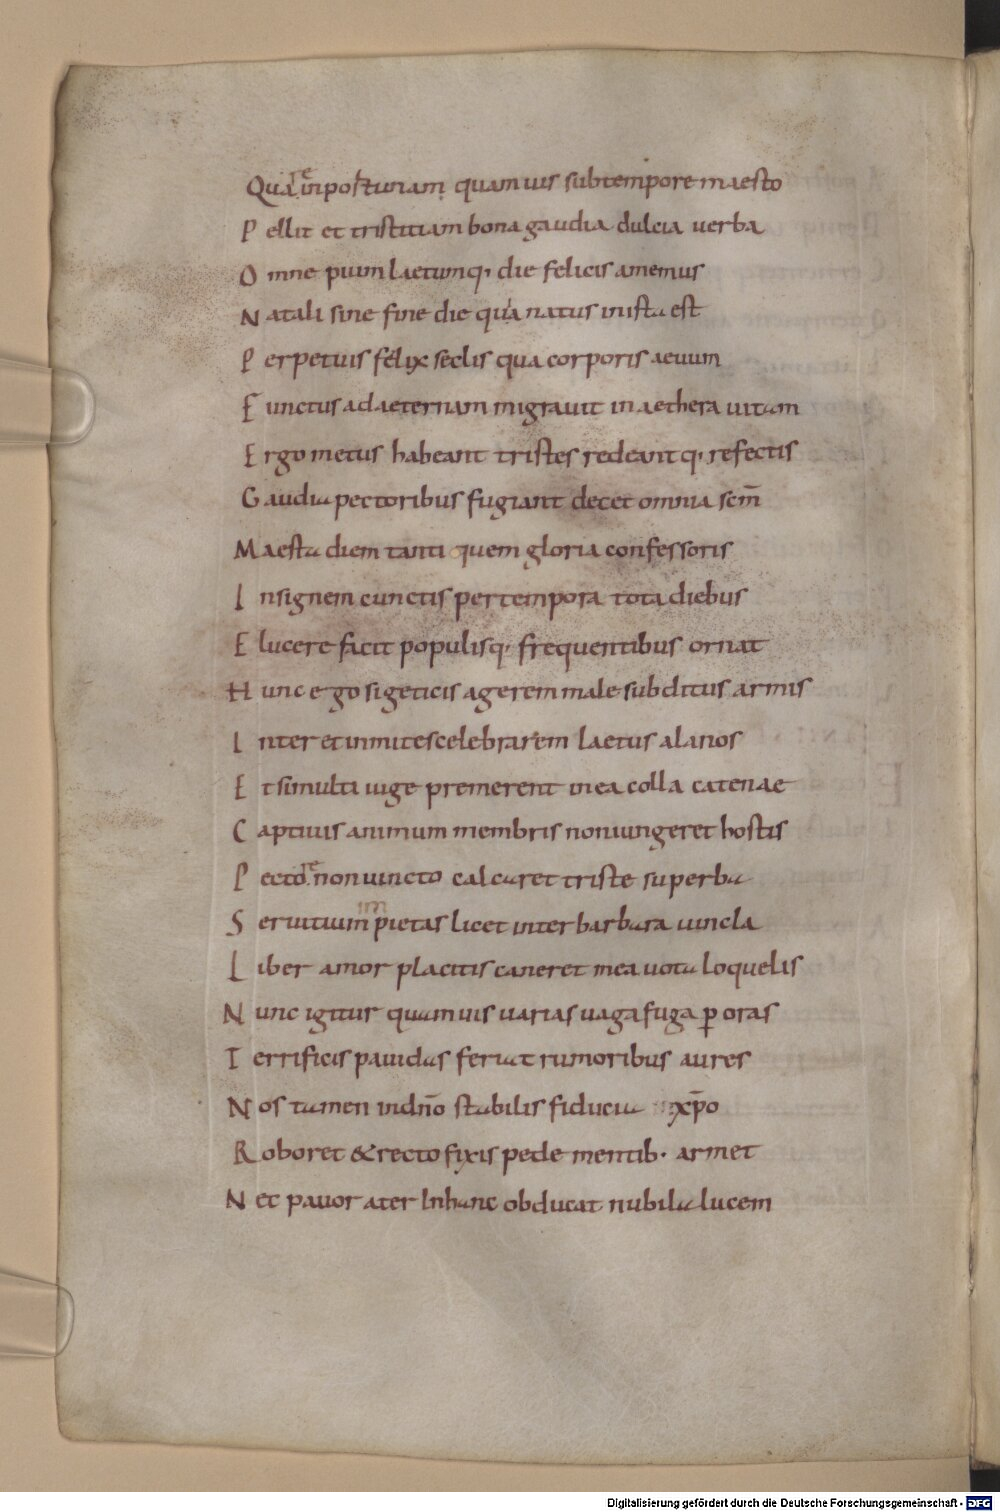 Quare inportunam quamuis sub tempore maesto
Pellit et tristitiam bona gaudia dulcia uerba
Omne pium laetumq· die felicis amemus
Natali sine fine die qua natus in ista est
Perpetuis felix seclis qua corporis aeuum
Functus ad aeternam migrauit in aethera uitam
Ergo metus habeant tristes redeantq· refectis
Gaudia pectoribus fugiant decet omnia scm̄
Maesta diem tanti quem gloria confessoris
Insignem cunctis per tempora tota diebus
Elucere facit populisq· frequentibus ornat
Hunc ergo si geticis agerem male subditus armis
Inter et inmites celebrarem laetus alanos
Et si multi iuge premerent mea colla catenae
Captiuis animum membris non iungeret hostis
Pectore non uincto calcaret triste superba
Seruitium impietas licet inter barbara uincla
Liber amor placitis caneret mea uota loquelis
Nunc igitur quamuis uarias uaga fuga ꝑ oras
Terrificis pauidas feriat rumoribus aures
Nos tamen in dn̄o stabilis fiducia xp̄o
Roboret & recto fixis pede mentib· armet
Nec pauor ater In hanc obducat nubila lucem
Digitalisierung gefördert durch die Deutsche Forschungsgemeinschaft - DFG